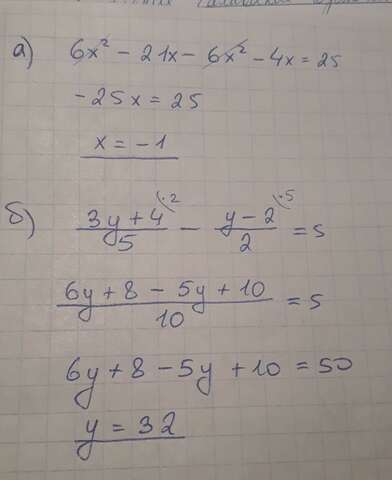 а) 6x² - 21x - 6x² - 4x = 25
-25x = 25
x = -1
б) (3y + 4)/5 ·2 - (y - 2)/2 ·5 = 5
(6y + 8 - 5y + 10)/10 = 5
6y + 8 - 5y + 10 = 50
y = 32